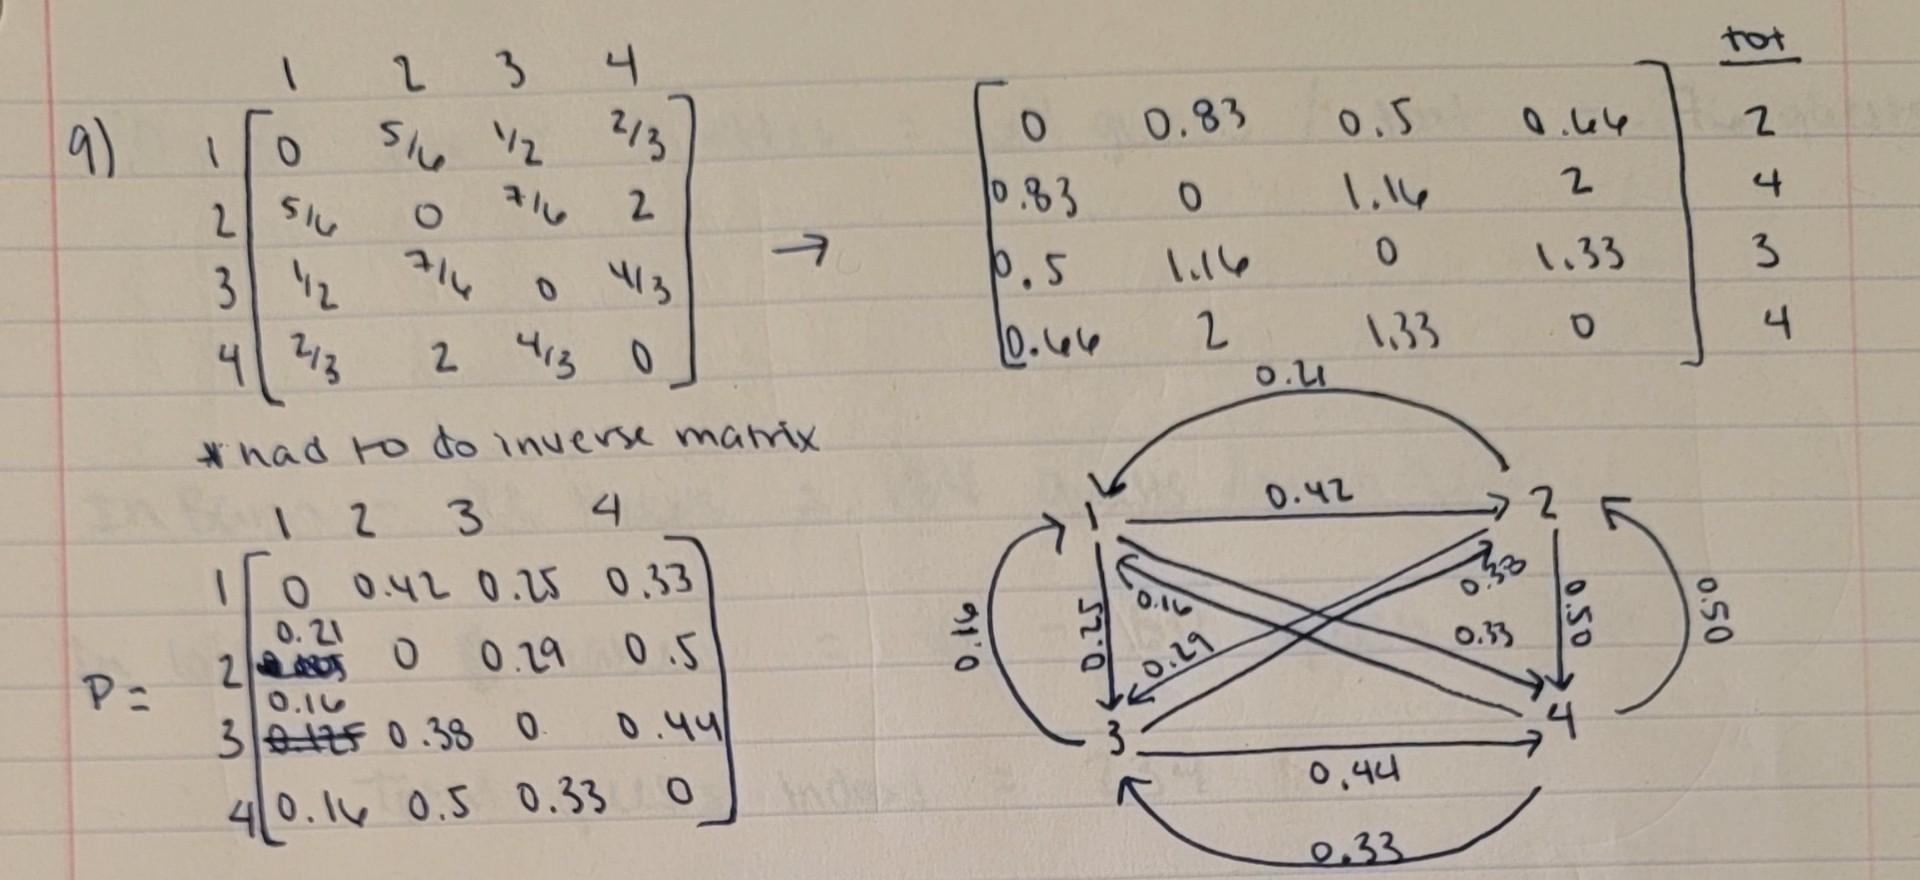 9)
1 2 3 4
1 0 5/6 1/2 2/3
2 5/6 0 7/6 2
3 1/2 7/6 0 4/3
4 2/3 2 4/3 0
→
tot
0 0.83 0.5 0.66 2
0.83 0 1.16 2 4
0.5 1.16 0 1.33 3
0.66 2 1.33 0 4
*had to do inverse matrix
P=
1 2 3 4
1 0 0.42 0.25 0.33
2 0.21 0 0.29 0.5
3 0.16 0.38 0 0.44
4 0.16 0.5 0.33 0
0.21
1 0.42 2
0.16 0.25 0.16 0.38 0.50 0.50
0.29 0.33
3 0.44 4
0.33